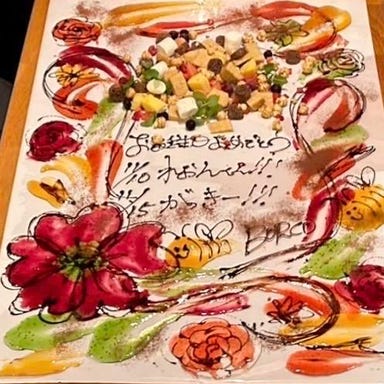 お誕生日おめでとう
11/10 れおんくん!!!
11/15 がっきー!!!